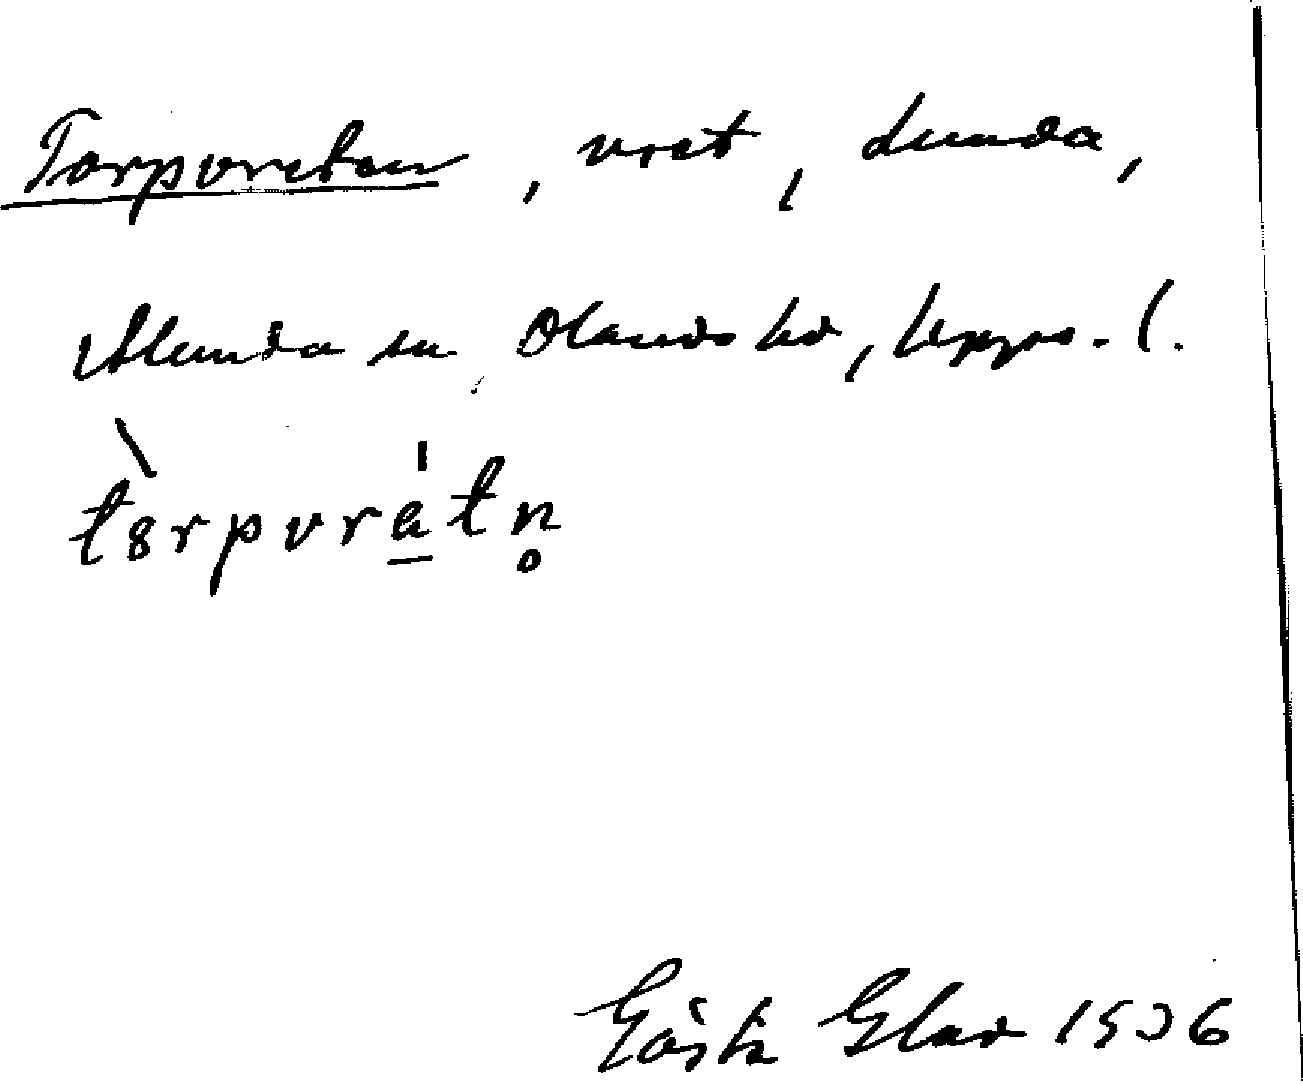 Torpvreten, vret, Lunda,
Alunda sn, Olands hd, Upps. l.
tò̀rpvrátn̥
Gösta Glad 1936